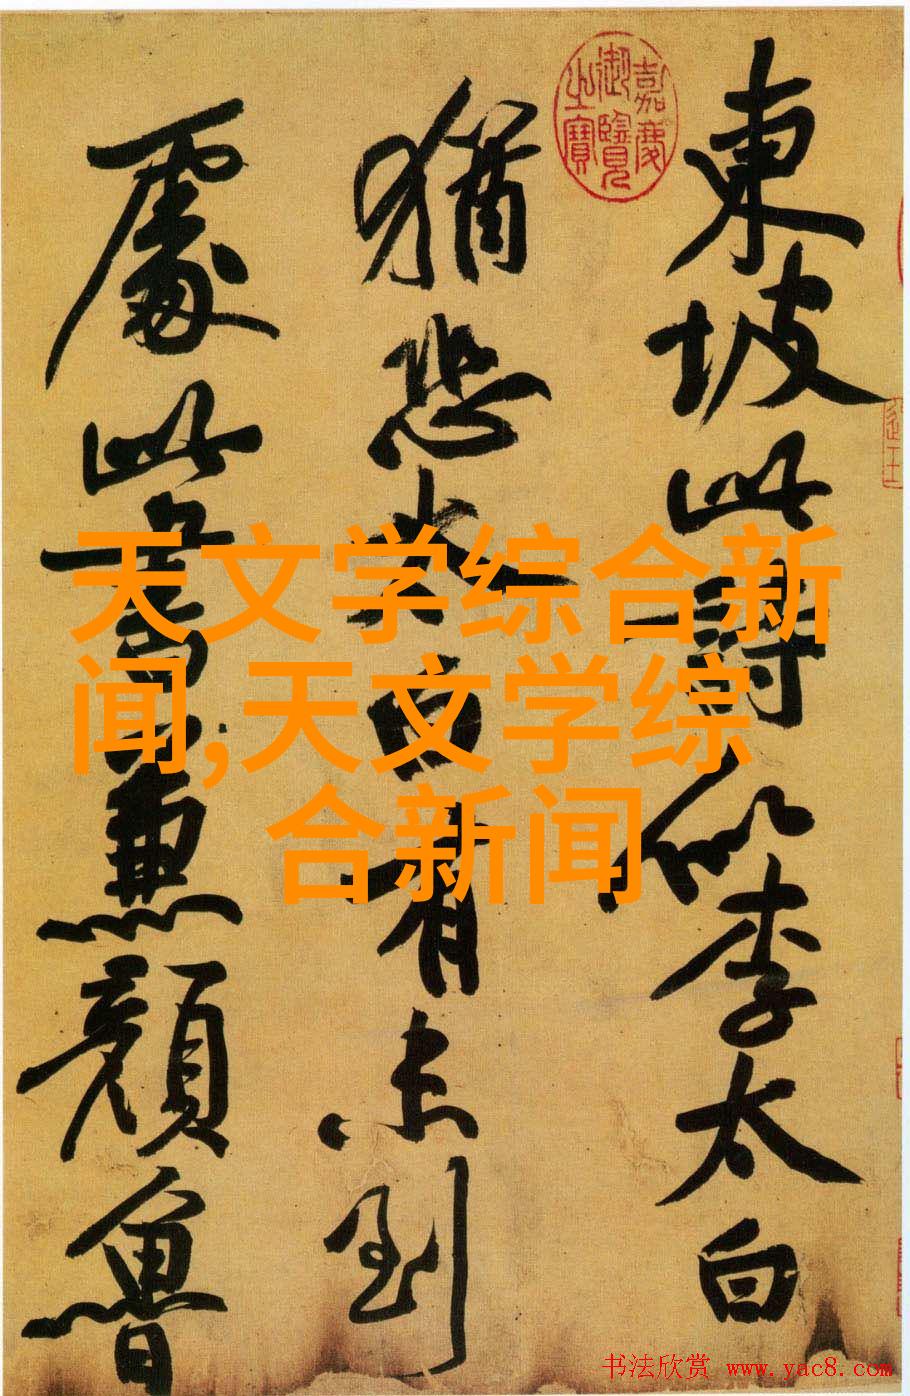 東坡此詩似李太白
猶恐太白有未到
處此書兼顏魯
嘉慶
御覽
之寶
天文学综合新
闻,天文学综
合新闻
书法欣赏 www.yac8.com